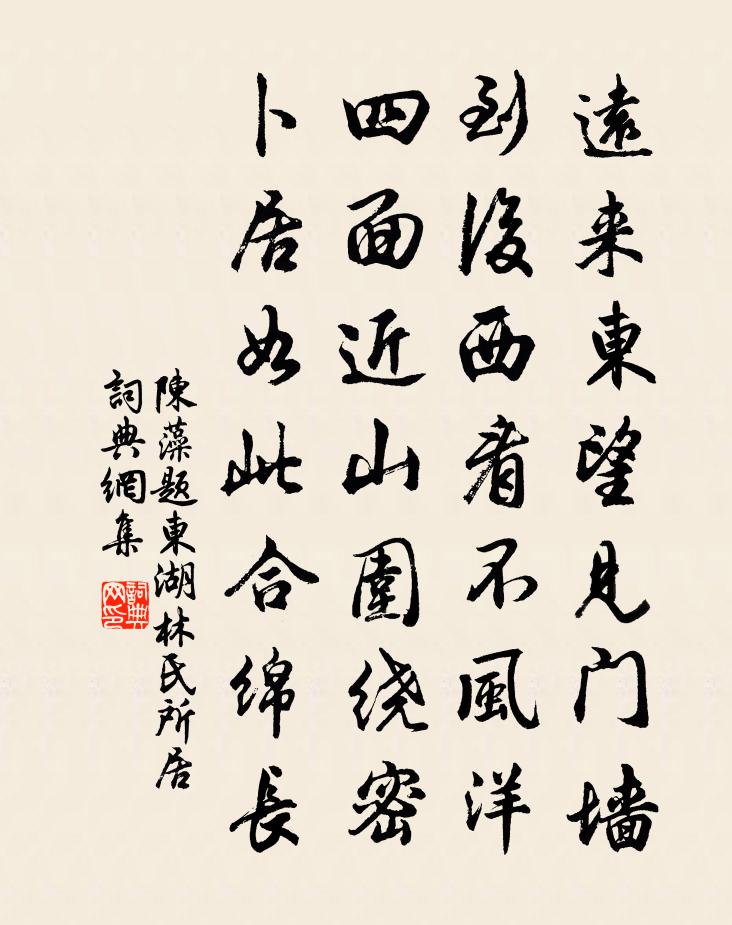 遠来東望見门墙
到後西看不風洋
四面近山圍绕密
卜居如此合绵長
陳藻题東湖林氏所居
詞典網集
詞典网印